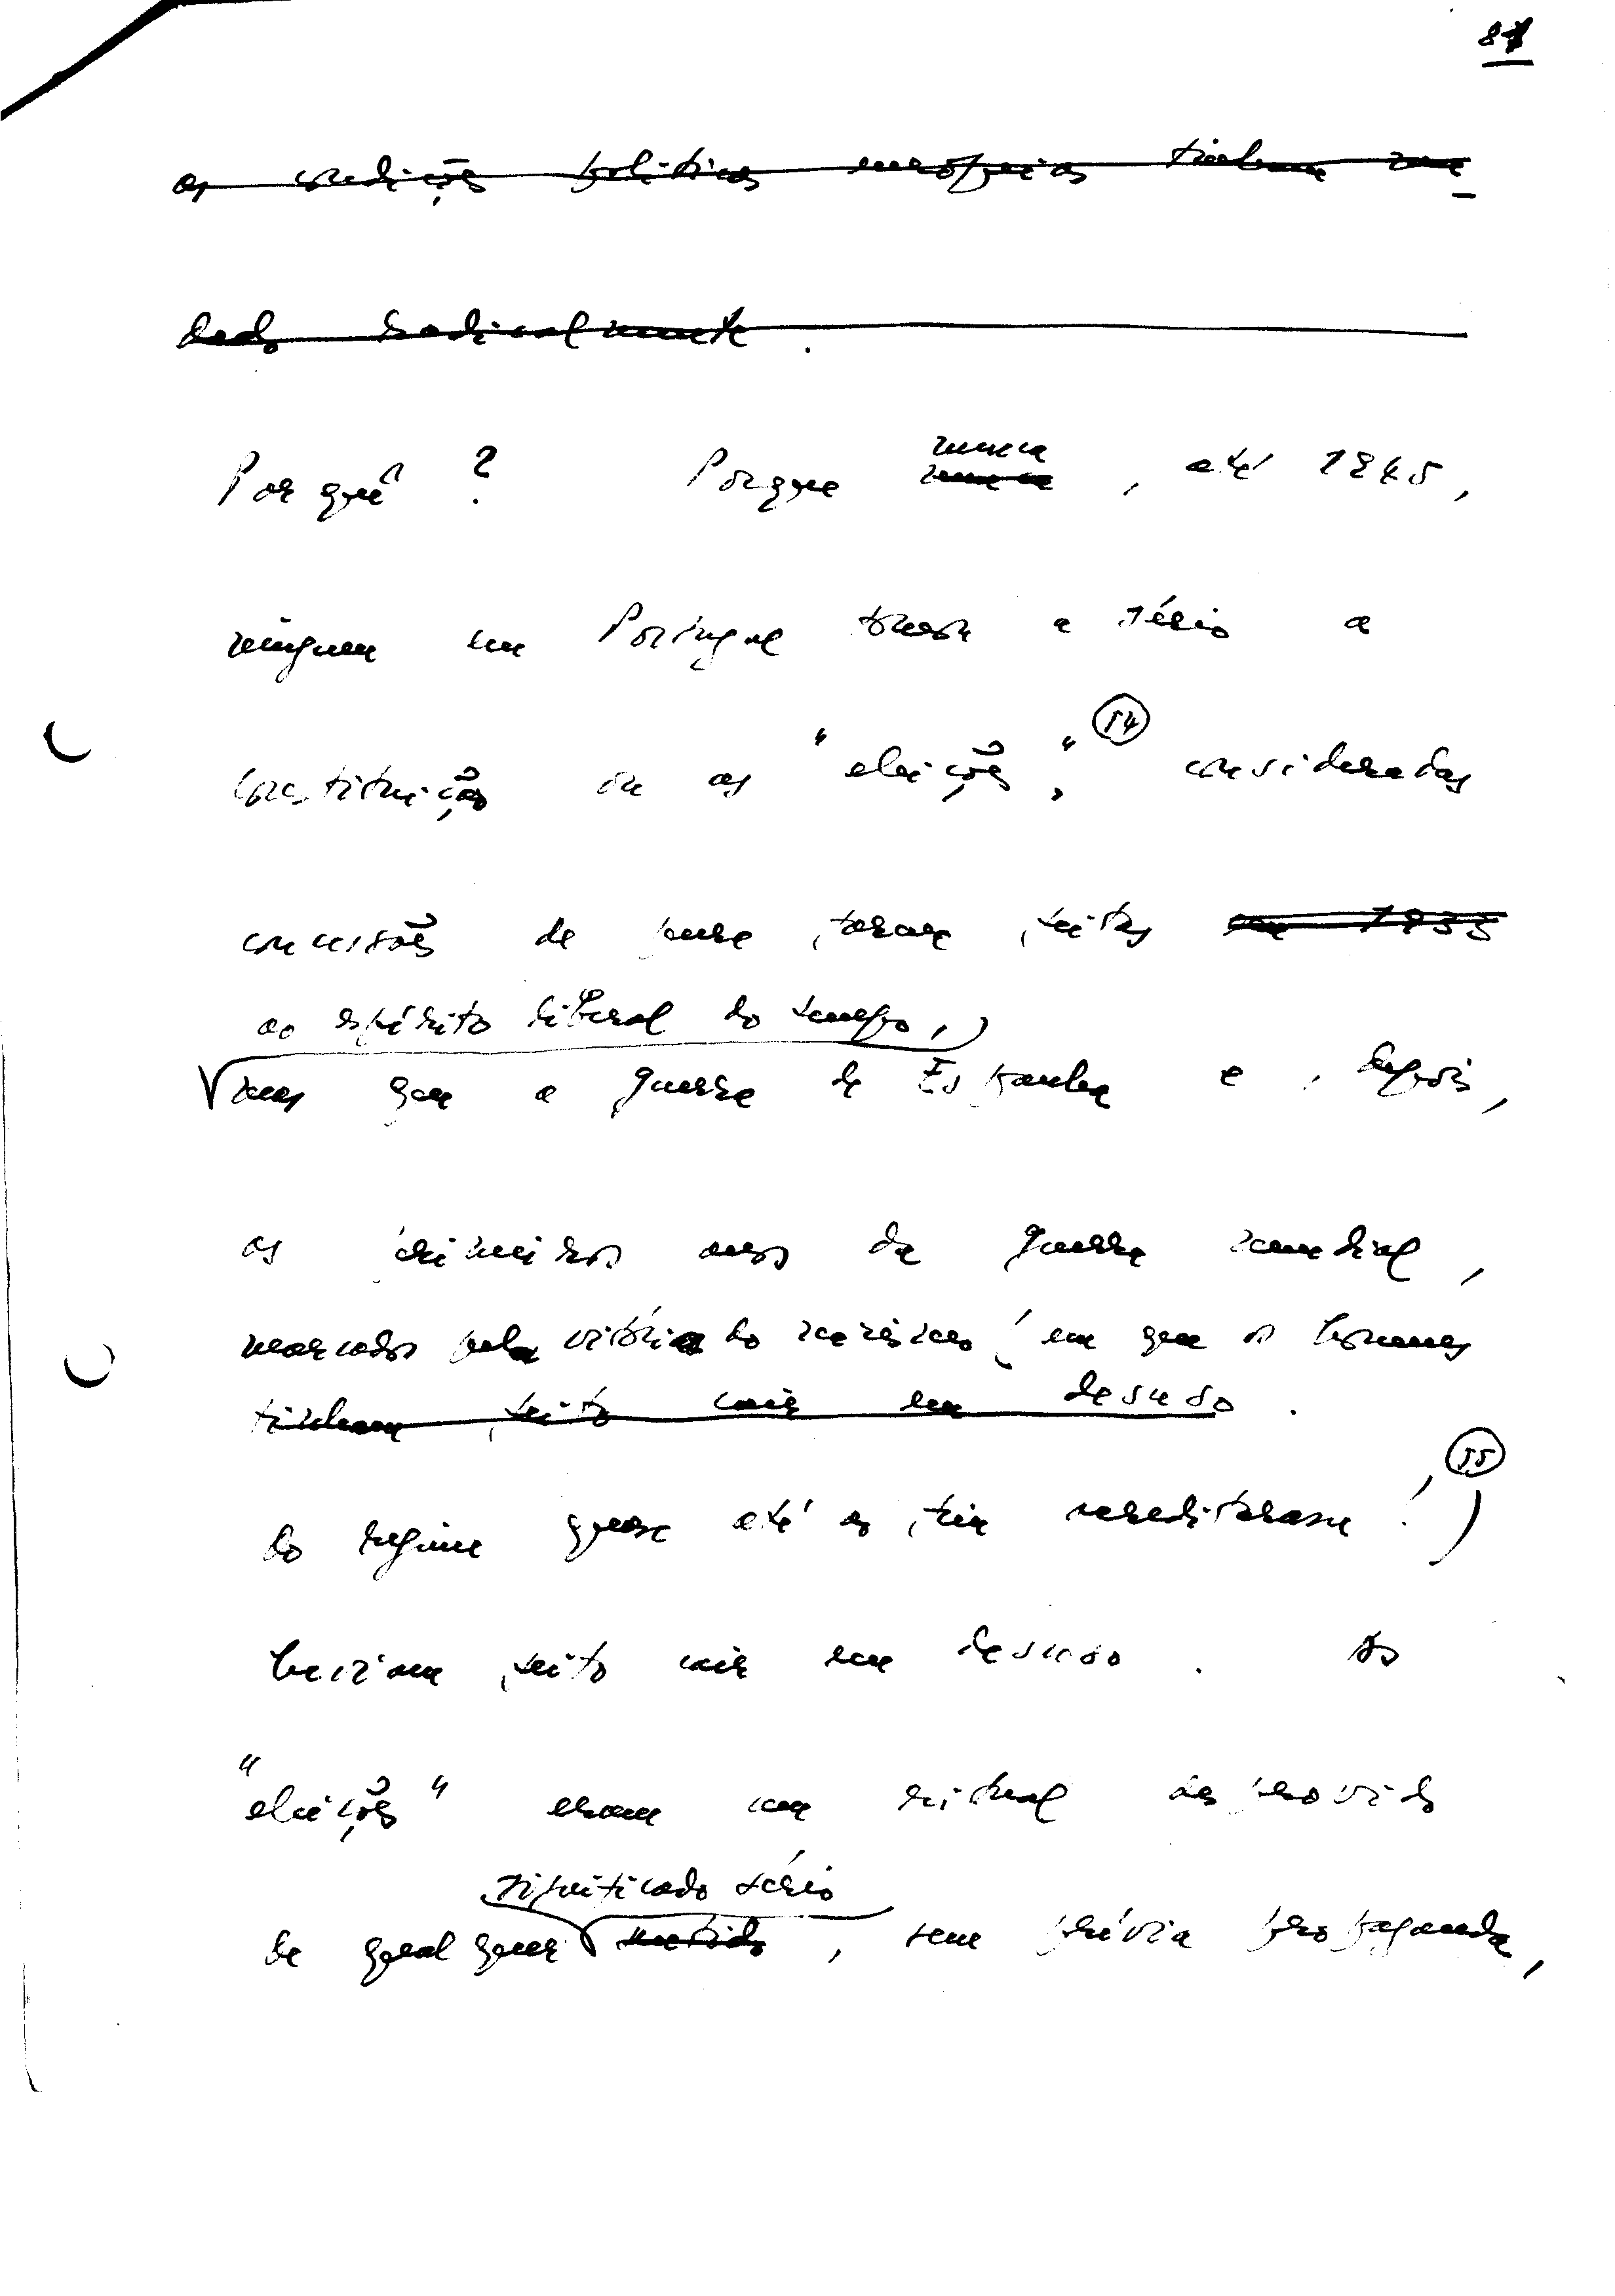 81
as condições políticas europeias tinham mu-
dado radicalmente.
Porquê? Porque nunca, até 1945,
ninguém em Portugal tomara a sério a
Constituição ou as "eleições", (54) consideradas
concessões de pura forma feitas em 1933
ao espírito liberal do tempo,
mas que a guerra de Espanha e, depois,
os primeiros anos da guerra mundial,
marcados pela vitória do nazismo (em que os homens
tinham feito cair em desuso.
do regime quase até ao fim acreditaram!) (55)
haviam feito cair em desuso. As
"eleições" eram um ritual desprovido
significado sério
de qualquer sentido, sem prévia propaganda,